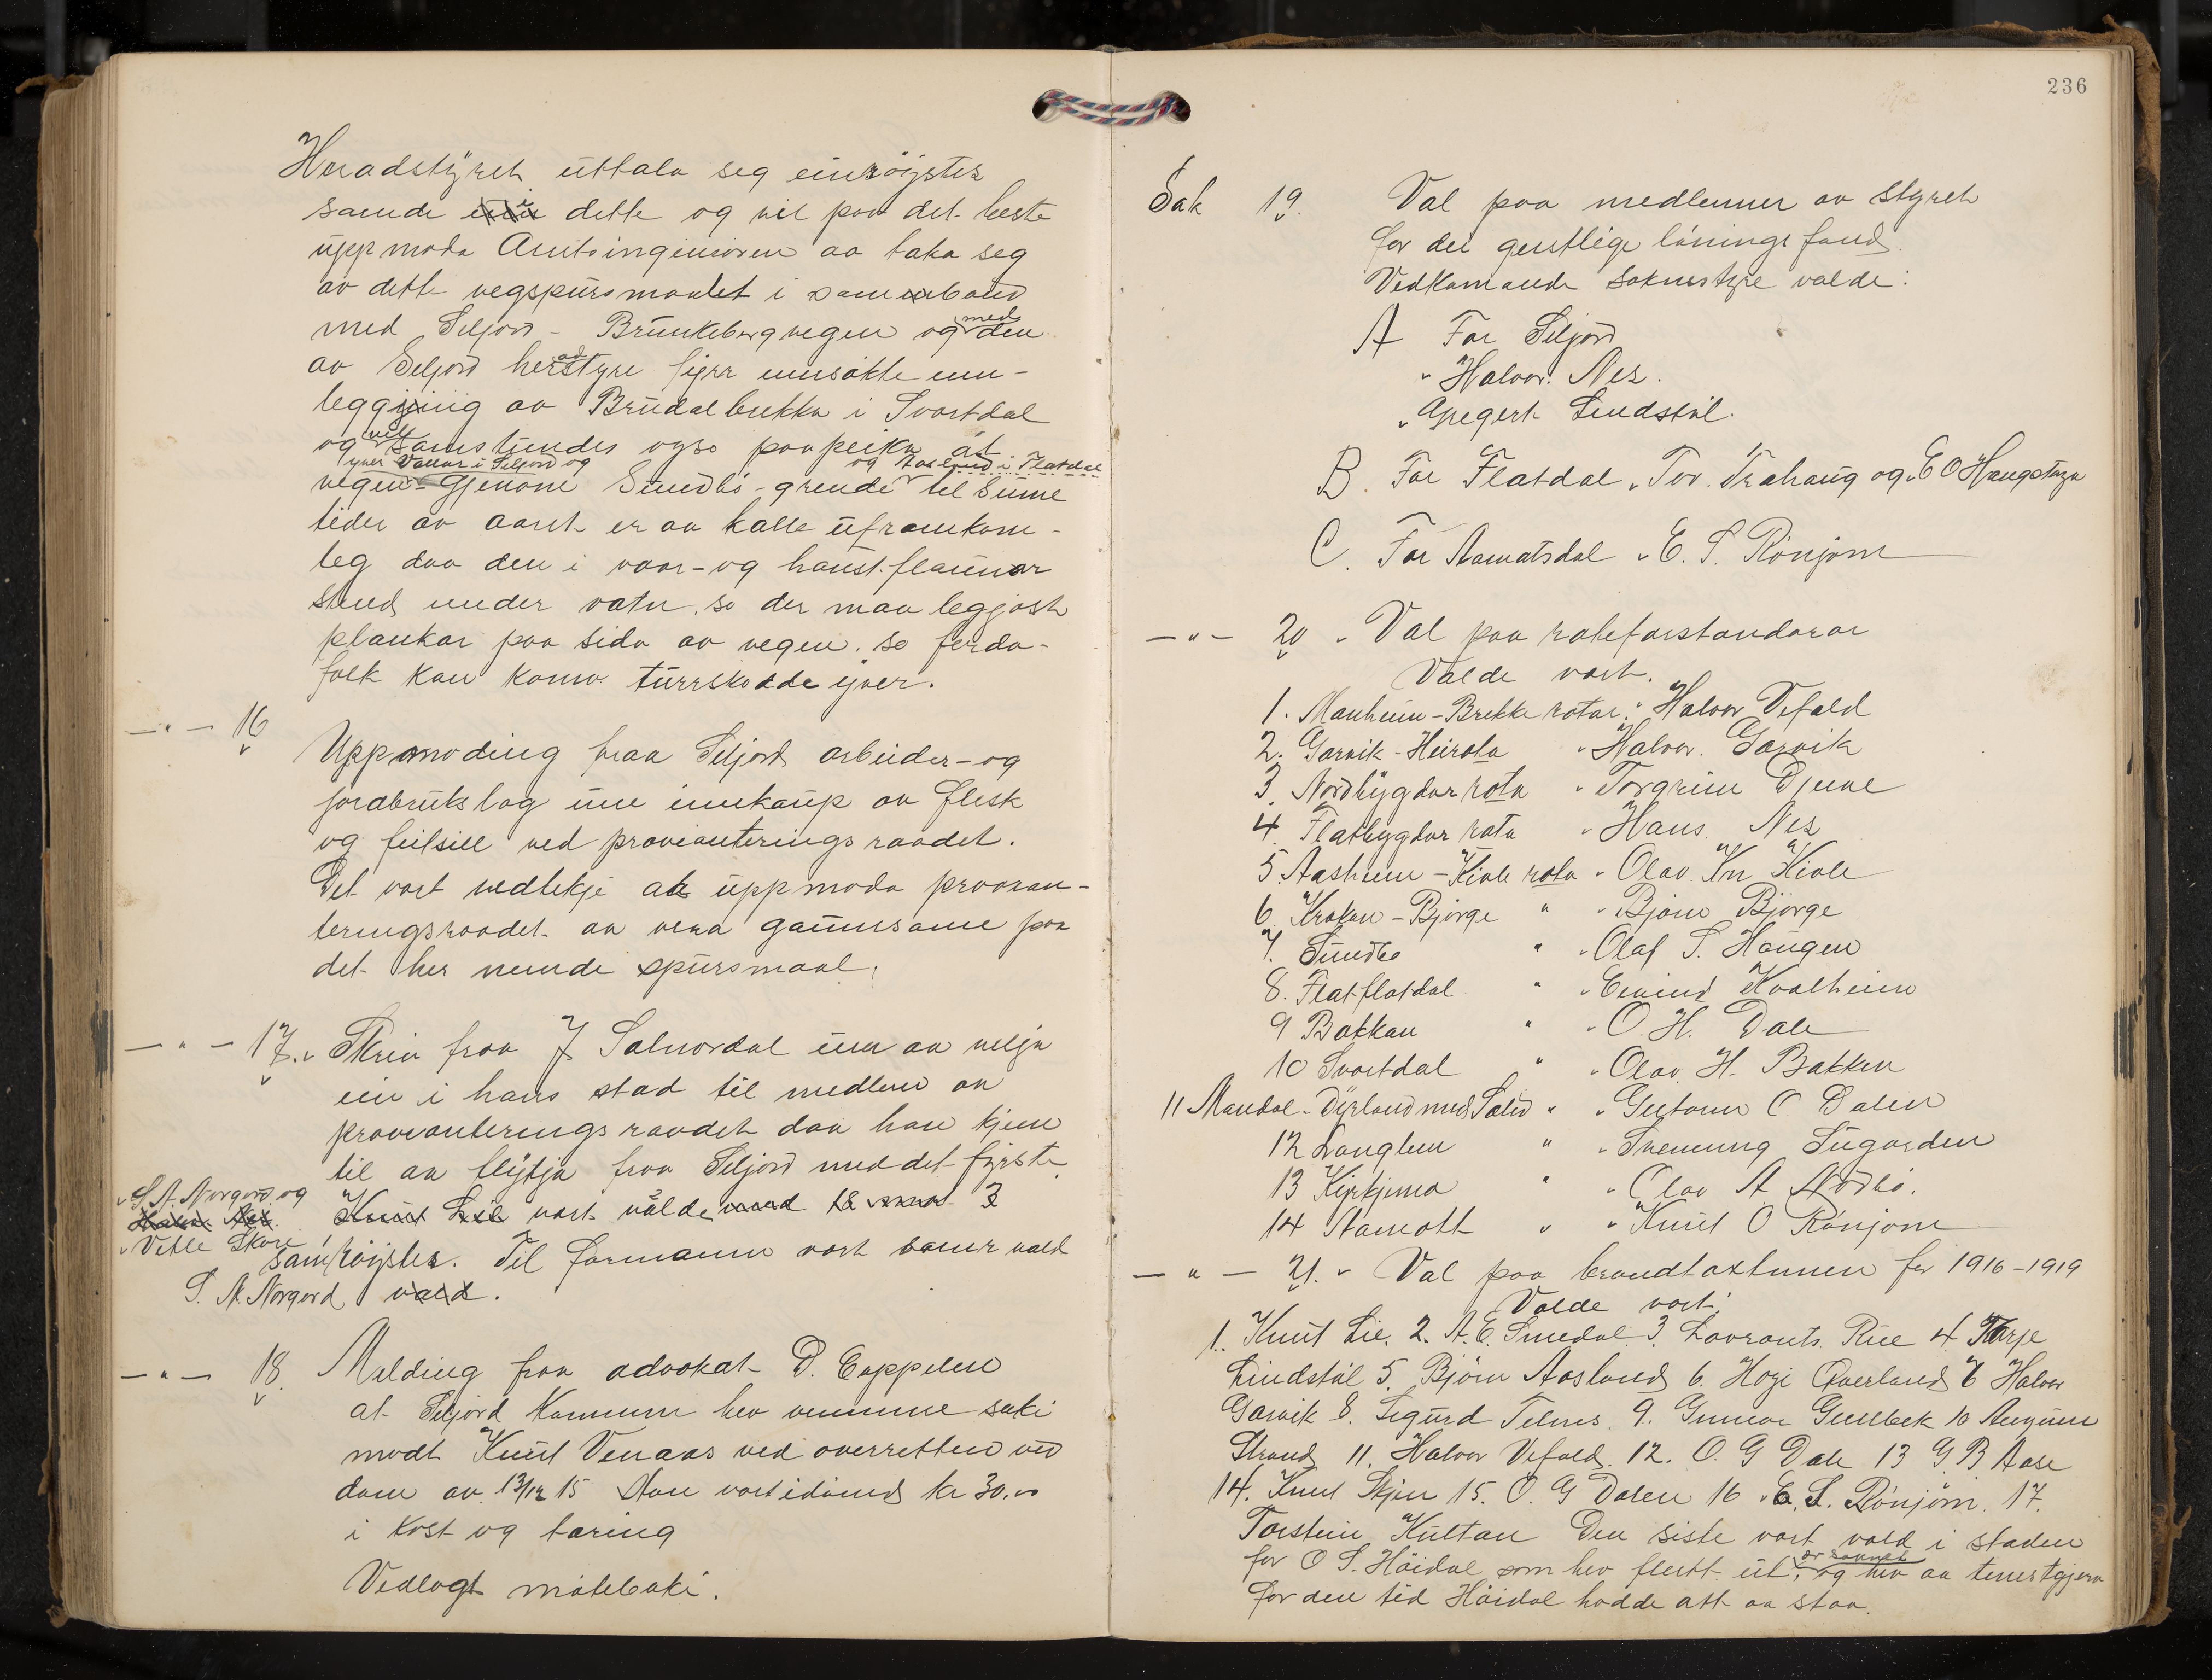 Heradstyret uttala seg einröystes
samde i dette og vil paa det beste
uppmoda Amtsingeniören aa taka seg
av dette vegspursmaalet i samband
med Seljord - Brunkebergvegen og med den
av Seljord heradstyre fyrr umsökte um-
legging av Brudalbrekka i Svartdal
og vil samstundes ogso paapeika at
yver Vallar i Seljord og
og Aasland i Flatdal
vegen - gjenom Sundbö-grendi til sume
tider av aaret er aa kalle uframkom-
leg daa den i vaar- og haust-flaumar
stend under vatn. so der maa leggjast
plankar paa sida av vegen. so ferda-
folk kan koma turrskodde yver.
— " — 16
Uppmoding fraa Seljord arbeider- og
jordbrukslag um innkaup av flesk
og feitsill ved provianteringsraadet.
Det vart vedtekje at uppmoda provian-
teringsraadet aa vera gaumsame paa
det her nemde spursmaal.
— " — 17. Skriv fraa J Salmordal um aa velja
ein i hans stad til medlem av
provianteringsraadet daa han kjem
til aa flytja fraa Seljord med det fyrste.
S. N. Norgard og
Knut Lie vart valde med 18 mot 3
Vetle Skore
samröystes. Til formann vart vald
S. N. Norgard vald.
— " — 18. Melding fraa advokat D. Cappelen
at Seljord Kommune hev vunne saki
modt Knut Venaas ved overretten ved
dom av 13/12 15 Han vart idömd kr 30.00
i kost og taring
Vedlagt möteboki.
236
Sak 19. Val paa medlemer av styret
for det geistlige löningsfond.
Vedkomande soknestyre valde:
A For Seljord
" Halvor Nes.
" Gregert Lindstöl.
B. For Flatdal " Tov Trahaug og " E O Haugstoga
C. For Aamotsdal " E. S. Rönjom
— " — 20 " Val paa roteforstandarar
Valde vart.
1. Manheim - Brekke rotar " Halvor Vefald
2. Garvik - Heirota " Halvor Garvik
3. Nordbygdar rota " Torgrim Djuve
4. Flatbygdar rota " Hans Nes
5. Aasheim - Kivle rota " Olav Kn Kivle
6. Kroken - Bjørge " " Bjørn Bjørge
7. Sundbö " " Olaf S. Haugen
8. Flatflatdal " " Eivind Kvalheim
9 Bakkan " " O. H. Dale
10 Svartdal " " Olav H. Bakken
11 Mandal - Dyrland med Salid " " Gutorm O Dalen
12 Langlim " " Svenung Sugarden
13 Kyrkjemo " " Olav A Nordbö.
14 Aamott " " Knut O Rönjom
— " — 21. " Val paa brandtakstmenn for 1916-1919
Valde vart:
1. Knut Lie. 2. A. E. Smedal 3. Lavrants Rue 4 Tarje
Lindstöl 5. Bjørn Aasland 6. Hogi Överland 7 Halvor
Garvik 8. Sigurd Telnes. 9. Gunnar Gullbek 10 Aanund
Strand 11. Halvor Vefald. 12. O. G Dale 13 G. B Aase
14. Knut Skjen 15. O. G Dalen 16 E. S. Rönjom. 17.
Torstein Kultan Den siste vart vald i staden
for O S. Höidal som hev flutt ut og hev aa tenestgjera
for den tid Höidal hadde att aa staa.